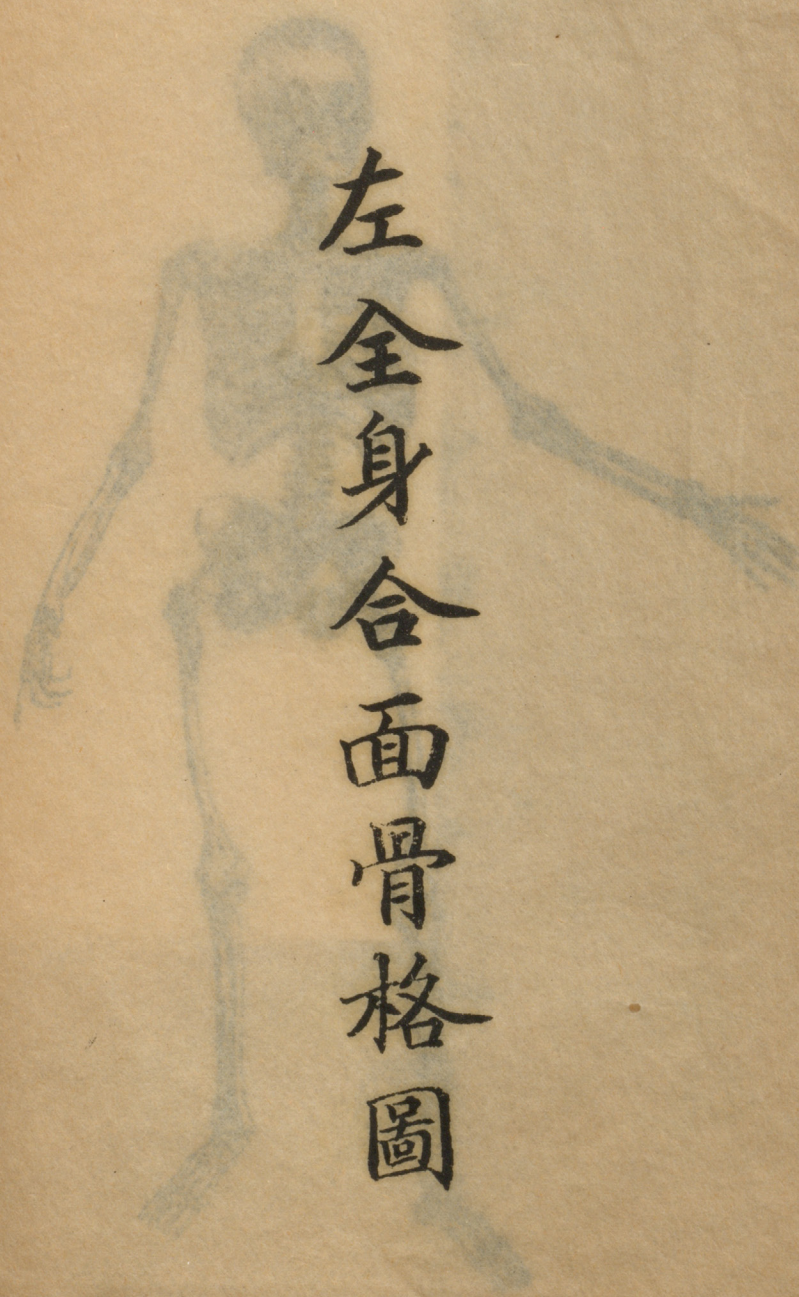 左全身合面骨格圖